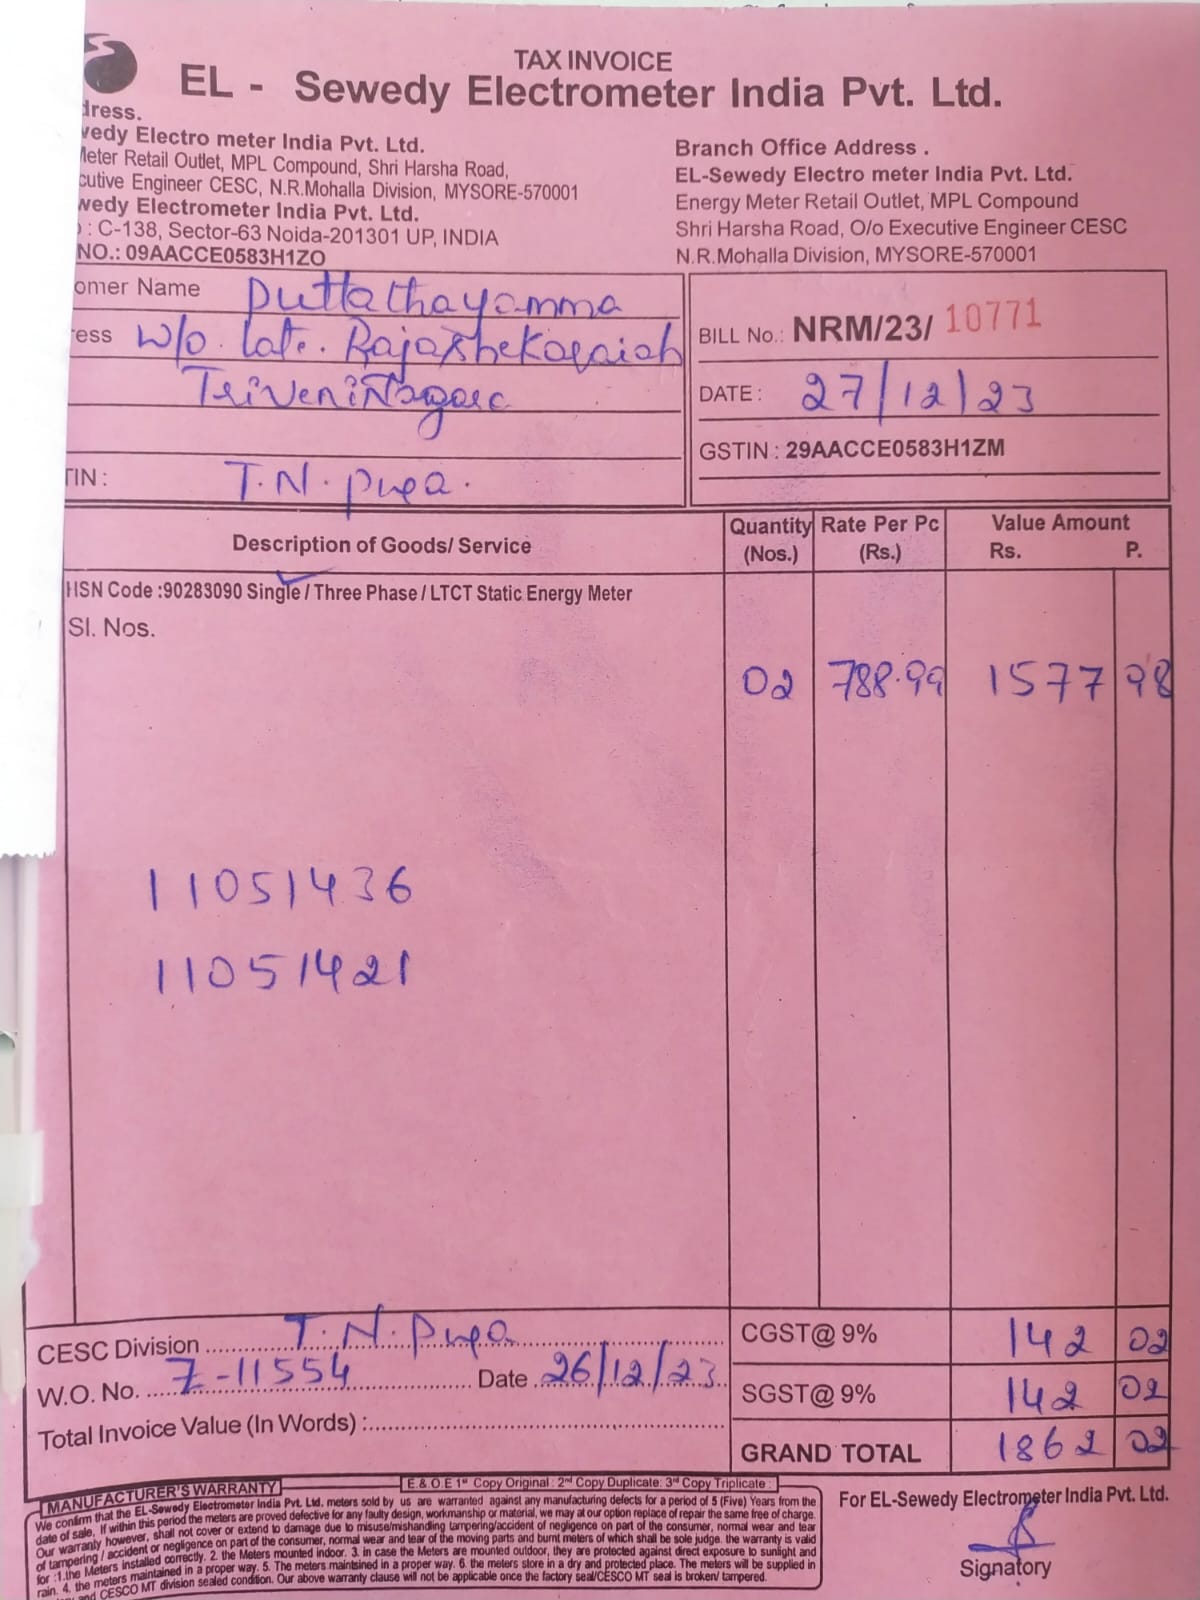 TAX INVOICE
EL - Sewedy Electrometer India Pvt. Ltd.
dress.
wedy Electro meter India Pvt. Ltd.
Meter Retail Outlet, MPL Compound, Shri Harsha Road,
cutive Engineer CESC, N.R.Mohalla Division, MYSORE-570001
wedy Electrometer India Pvt. Ltd.
: C-138, Sector-63 Noida-201301 UP, INDIA
NO.: 09AACCE0583H1ZO
Branch Office Address .
EL-Sewedy Electro meter India Pvt. Ltd.
Energy Meter Retail Outlet, MPL Compound
Shri Harsha Road, O/o Executive Engineer CESC
N.R.Mohalla Division, MYSORE-570001
omer Name Puttathayamma
ess W/o. late. Rajashekaraiah
TriveniNagara
TIN : T.N. pura.
BILL No.: NRM/23/ 10771
DATE : 27/12/23
GSTIN : 29AACCE0583H1ZM
Description of Goods/ Service Quantity (Nos.) Rate Per Pc (Rs.) Value Amount Rs. P.
HSN Code :90283090 Single / Three Phase / LTCT Static Energy Meter
Sl. Nos.
02 788.99 1577 98
11051436
11051421
CESC Division T.N. Pura
W.O. No. Z-11554 Date 26/12/23
Total Invoice Value (In Words) :
CGST@ 9% 142 02
SGST@ 9% 142 02
GRAND TOTAL 1862 02
E & O E 1st Copy Original : 2nd Copy Duplicate: 3rd Copy Triplicate :
MANUFACTURER'S WARRANTY
We confirm that the EL-Sewedy Electrometer India Pvt. Ltd. meters sold by us are warranted against any manufacturing defects for a period of 5 (Five) Years from the
date of sale. If within this period the meters are proved defective for any faulty design, workmanship or material, we may at our option replace of repair the same free of charge.
Our warranty however, shall not cover or extend to damage due to misuse/mishandling tampering/accident of negligence on part of the consumer, normal wear and tear
of tampering / accident or negligence on part of the consumer, normal wear and tear of the moving parts and burnt meters of which shall be sole judge. the warranty is valid
for :1.the Meters installed correctly. 2. the Meters mounted indoor. 3. in case the Meters are mounted outdoor, they are protected against direct exposure to sunlight and
rain. 4. the meters maintained in a proper way. 5. The meters maintsined in a proper way. 6. the meters store in a dry and protected place. The meters will be supplied in
and CESCO MT division sealed condition. Our above warranty clause will not be applicable once the factory seal/CESCO MT seal is broken/ tampered.
For EL-Sewedy Electrometer India Pvt. Ltd.
Signatory